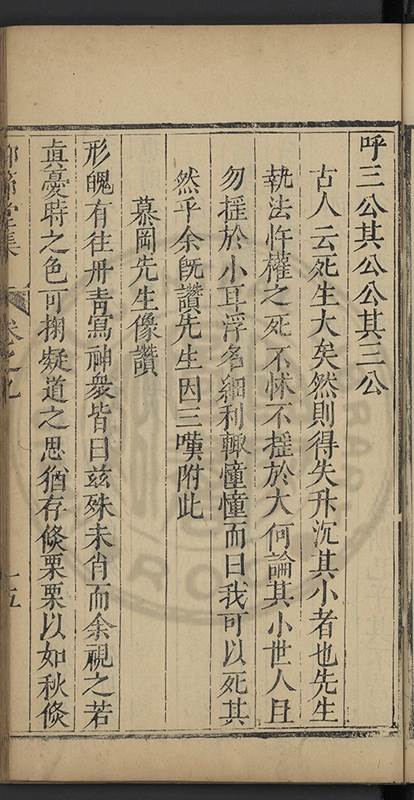 呼三公其公公其三公
古人云死生大矣然則得失升沉其小者也先生
執法忤權之死不怵不搖於大何論其小世人且
勿搖於小耳浮名細利輙憧憧而曰我可以死其
然乎余旣讚先生因三嘆附此
慕岡先生像讚
形魄有往丹靑寫神衆皆曰兹殊未肖而余視之若
眞憂時之色可掬凝道之思猶存倏栗栗以如秋倏
堂集
卷之九
十五